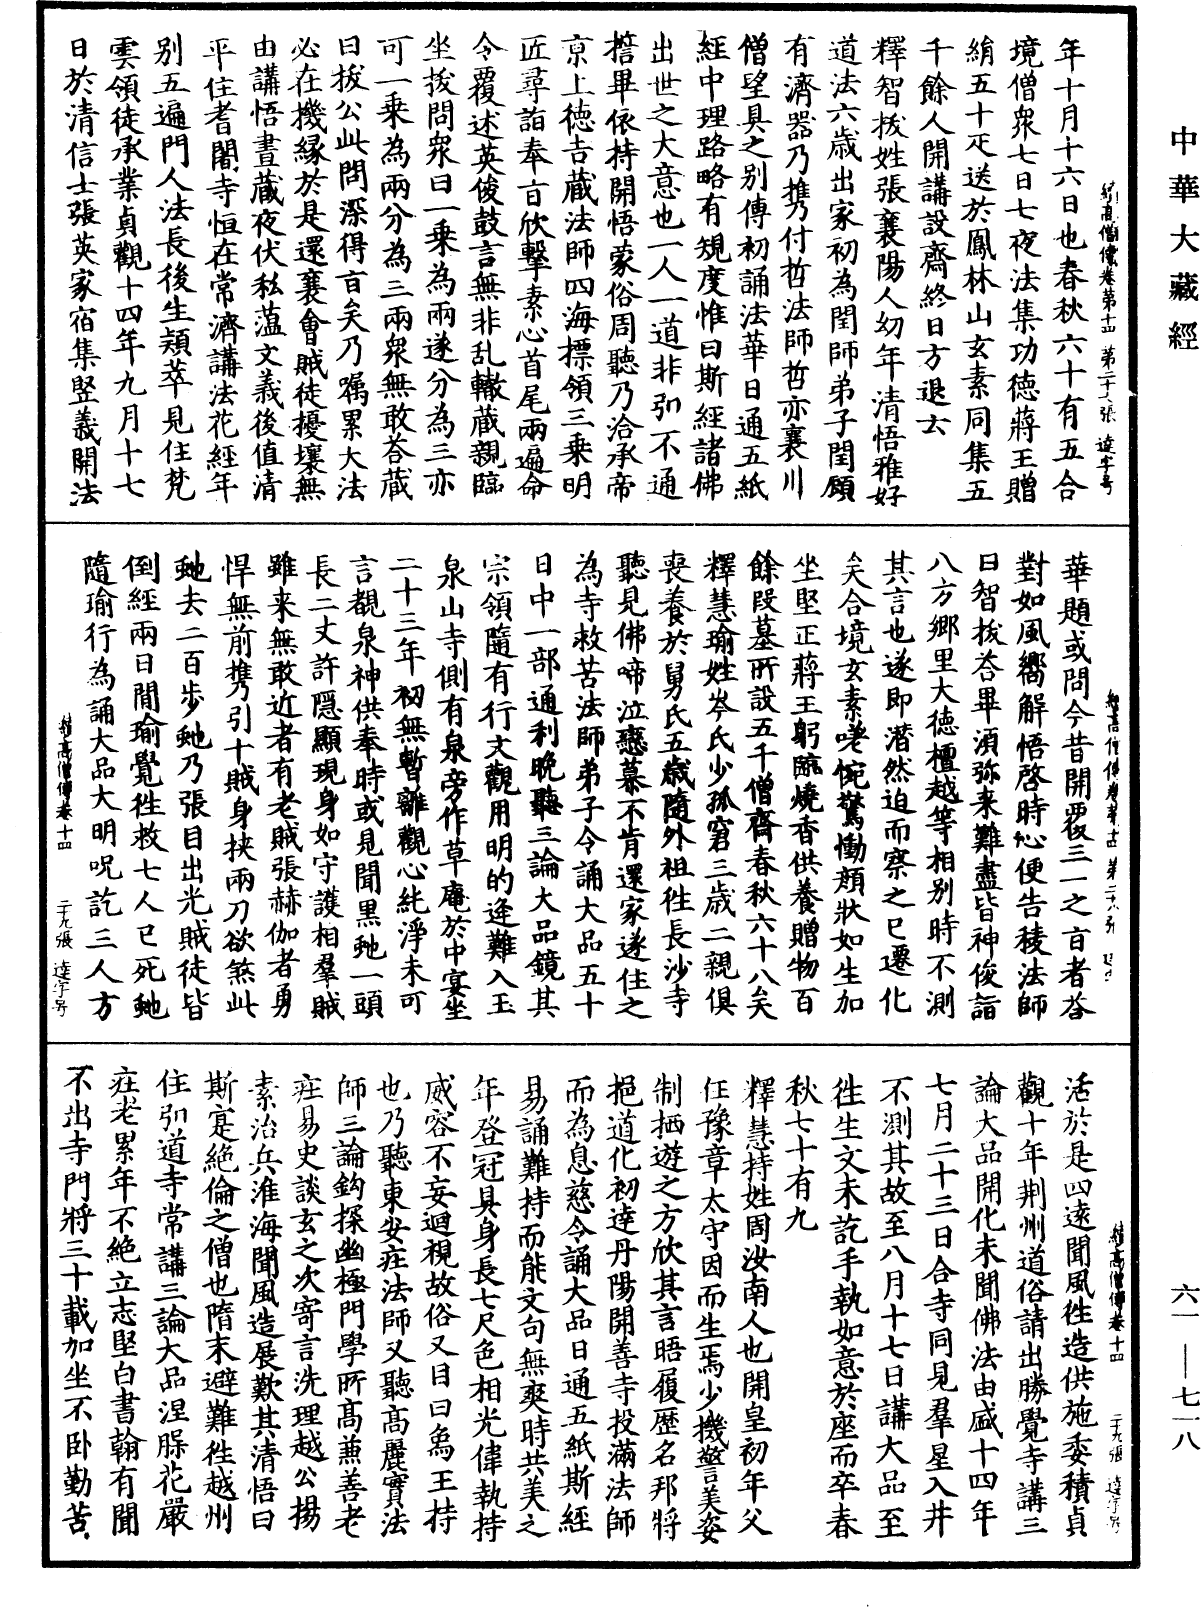 中華大藏經
續高僧傳卷第十四 第二十八張 達字号
年十月十六日也春秋六十有五合
境僧衆七日七夜法集功德蔣王贈
絹五十疋送於鳳林山玄素同集五
千餘人開講設齋終日方退去
釋智拔姓張襄陽人幼年清悟雅好
道法六歲出家初為閏師弟子閏顧
有濟器乃擕付哲法師哲亦襄川
僧望具之別傳初誦法華日通五紙
經中理路略有規度惟曰斯經諸佛
出世之大意也一人一道非弘不通
捨畢依持開悟蒙俗周聽乃洽承帝
京上德吉藏法師四海標領三乘明
匠尋詣奉旨欣擊素心首尾兩遍命
令覆述英俊鼓言無非乱轍藏親臨
坐拔問衆曰一乘為兩遂分為三亦
可一乘為兩分為三兩衆無敢荅藏
曰拔公此問深得旨矣乃囑累大法
必在機緣於是還襄會賊徒擾壤無
由講悟晝藏夜伏私蕰文義後值清
平住耆闍寺恒在常濟講法花經年
別五遍門人法長後生穎萃見住梵
雲領徒承業貞觀十四年九月十七
日於清信士張英家宿集竪義開法
華題或問今昔開覆三一之旨者荅
對如風嚮解悟啓時心便告稜法師
曰智拔荅畢湏弥来難盡皆神俊詣
八方鄉里大德檀越等相別時不測
其言也遂即潛然迫而察之已遷化
矣合境玄素嗟惋驚慟顏狀如生加
坐堅正蔣王躬臨燒香供養贈物百
餘段墓所設五千僧齋春秋六十八矣
釋慧瑜姓岑氏少孤窮三歲二親俱
喪養於舅氏五歲隨外祖徃長沙寺
聽見佛啼泣戀慕不肯還家遂住之
為寺救苦法師弟子令誦大品五十
日中一部通利晚聽三論大品鏡其
宗領隨有行文觀用明的逢難入玉
泉山寺側有泉旁作草庵於中宴坐
二十三年初無暫離觀心純淨未可
言覩泉神供奉時或見聞黑虵一頭
長二丈許隱顯現身如守護相羣賊
雖来無敢近者有老賊張赫伽者勇
悍無前擕引十賊身挾兩刀欲煞此
虵去二百步虵乃張目出光賊徒皆
倒經兩日間瑜覺徃救七人已死虵
隨瑜行為誦大品大明呪訖三人方
續高僧傳卷十四 二十九張 達字号
活於是四逺聞風徃造供施委積貞
觀十年荆州道俗請出勝覺寺講三
論大品開化未聞佛法由盛十四年
七月二十三日合寺同見羣星入井
不測其故至八月十七日講大品至
徃生文未訖手執如意於座而卒春
秋七十有九
釋慧持姓周汝南人也開皇初年父
任豫章太守因而生焉少機警美姿
制栖遊之方欣其言晤履歷名邦將
挹道化初達丹陽開善寺投滿法師
而為息慈令誦大品日通五紙斯經
易誦難持而能文句無爽時共美之
年登冠具身長七尺色相光偉執持
威容不妄迴視故俗又目曰烏王持
也乃聽東安㽵法師又聽高麗實法
師三論鈎探幽極門學所高兼善老
㽵易史談玄之次寄言洗理越公揚
素治兵淮海聞風造展歎其清悟曰
斯寔絶倫之僧也隋末避難徃越州
住弘道寺常講三論大品涅槃花嚴
㽵老累年不絶立志堅白書翰有聞
不出寺門將三十載加坐不卧勤苦
六一—七一八